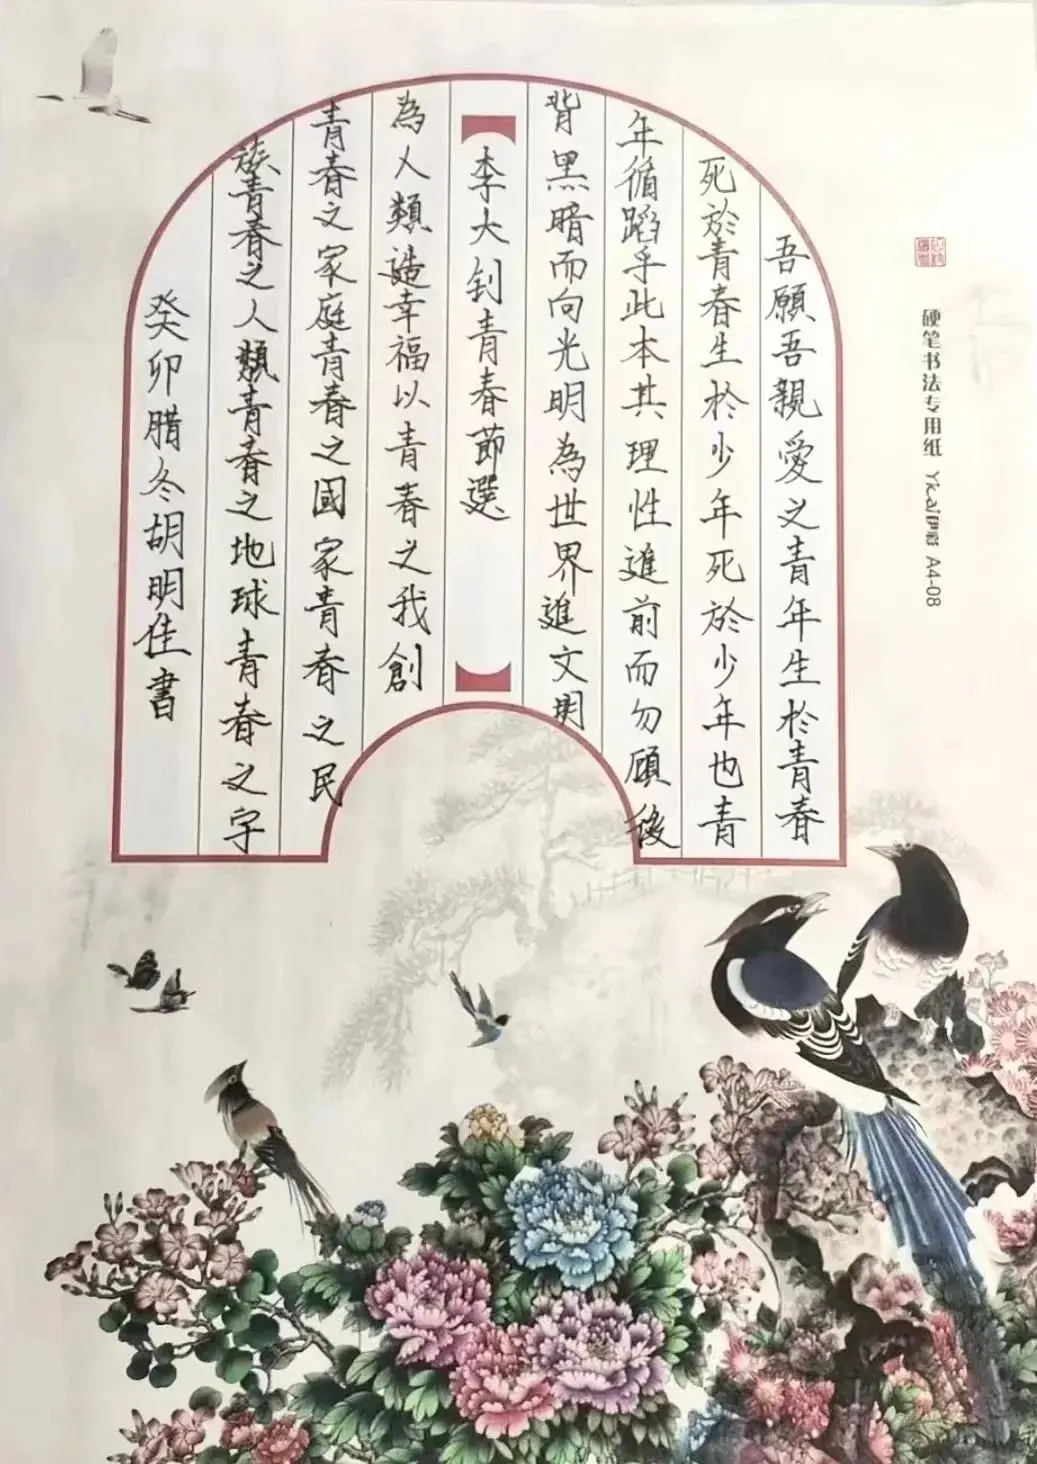 硬笔书法专用纸 A4-08
吾願吾親愛之青年生於青春
死於青春生於少年死於少年也青
年循蹈乎此本其理性進前而勿顧後
背黑暗而向光明為世界進文明
李大钊青春節選
為人類造幸福以青春之我創
青春之家庭青春之國家青春之民
族青春之人類青春之地球青春之字
癸卯腊冬胡明佳書